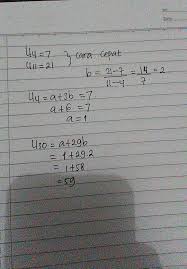 U4 = 7 } cara cepat
U11 = 21
b = 21-7 / 11-4 = 14 / 7 = 2
U4 = a+3b = 7
a+6 = 7
a = 1
U30 = a+29b
= 1+29.2
= 1+58
= 59